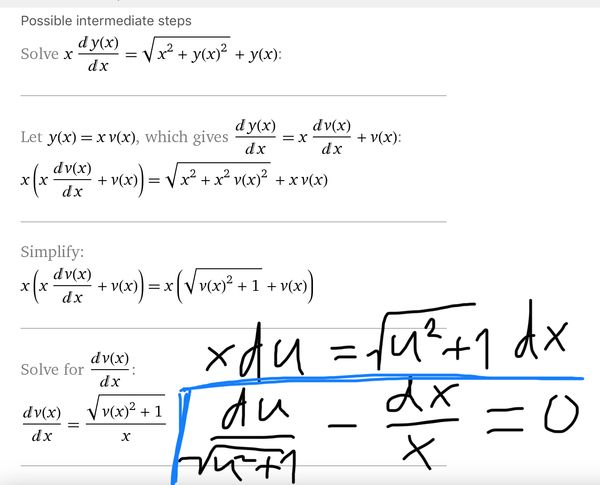 Possible intermediate steps
Solve x dy(x)/dx = √(x² + y(x)²) + y(x):
Let y(x) = x v(x), which gives dy(x)/dx = x dv(x)/dx + v(x):
x(x dv(x)/dx + v(x)) = √(x² + x² v(x)²) + x v(x)
Simplify:
x(x dv(x)/dx + v(x)) = x(√(v(x)² + 1) + v(x))
Solve for dv(x)/dx:
dv(x)/dx = √(v(x)² + 1)/x
xdu = √(u²+1) dx
du/√(u²+1) - dx/x = 0